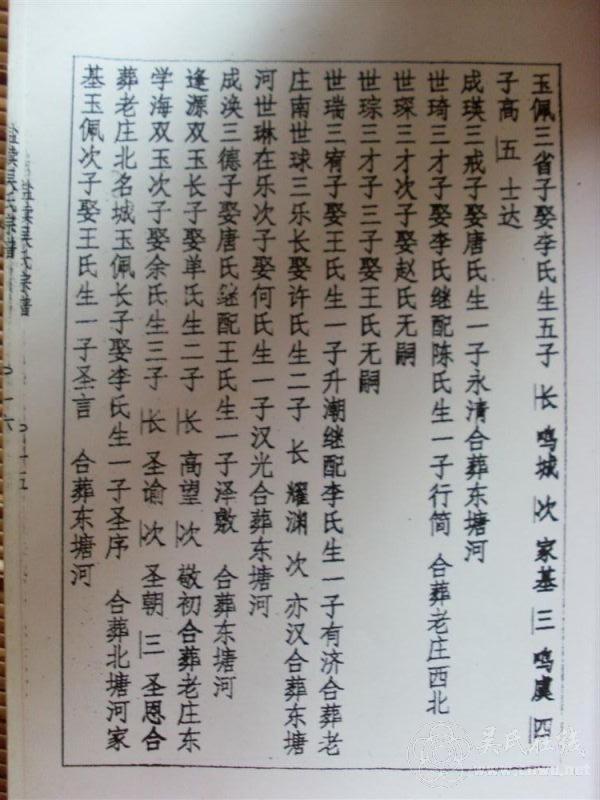 玉佩三省子娶李氏生五子 长 鸣城 次 家基 三 鸣虞 四
子高 五 士达
成瑛三戒子娶唐氏生一子永清合葬东塘河
世琦三才子娶李氏继配陈氏生一子行简 合葬老庄西北
世琛三才次子娶赵氏无嗣
世琮三才子三子娶王氏无嗣
世瑞三宥子娶王氏生一子升潮继配李氏生一子有济合葬老
庄南世球三乐长娶许氏生二子 长 耀渊 次 亦汉合葬东塘
河世琳在乐次子娶何氏生一子汉光合葬东塘河
成涣三德子娶唐氏继配王氏生一子泽敷 合葬东塘河
逢源双玉长子娶单氏生二子 长 高望 次 敬初合葬老庄东
学海双玉次子娶余氏生三子 长 圣谕 次 圣朝 三 圣恩合
葬老庄北名城玉佩长子娶李氏生一子圣序 合葬北塘河家
基玉佩次子娶王氏生一子圣言 合葬东塘河
盐渎吴氏宗谱
一五
盐渎吴氏宗谱
一六
吴氏在线
www.cnwu.net